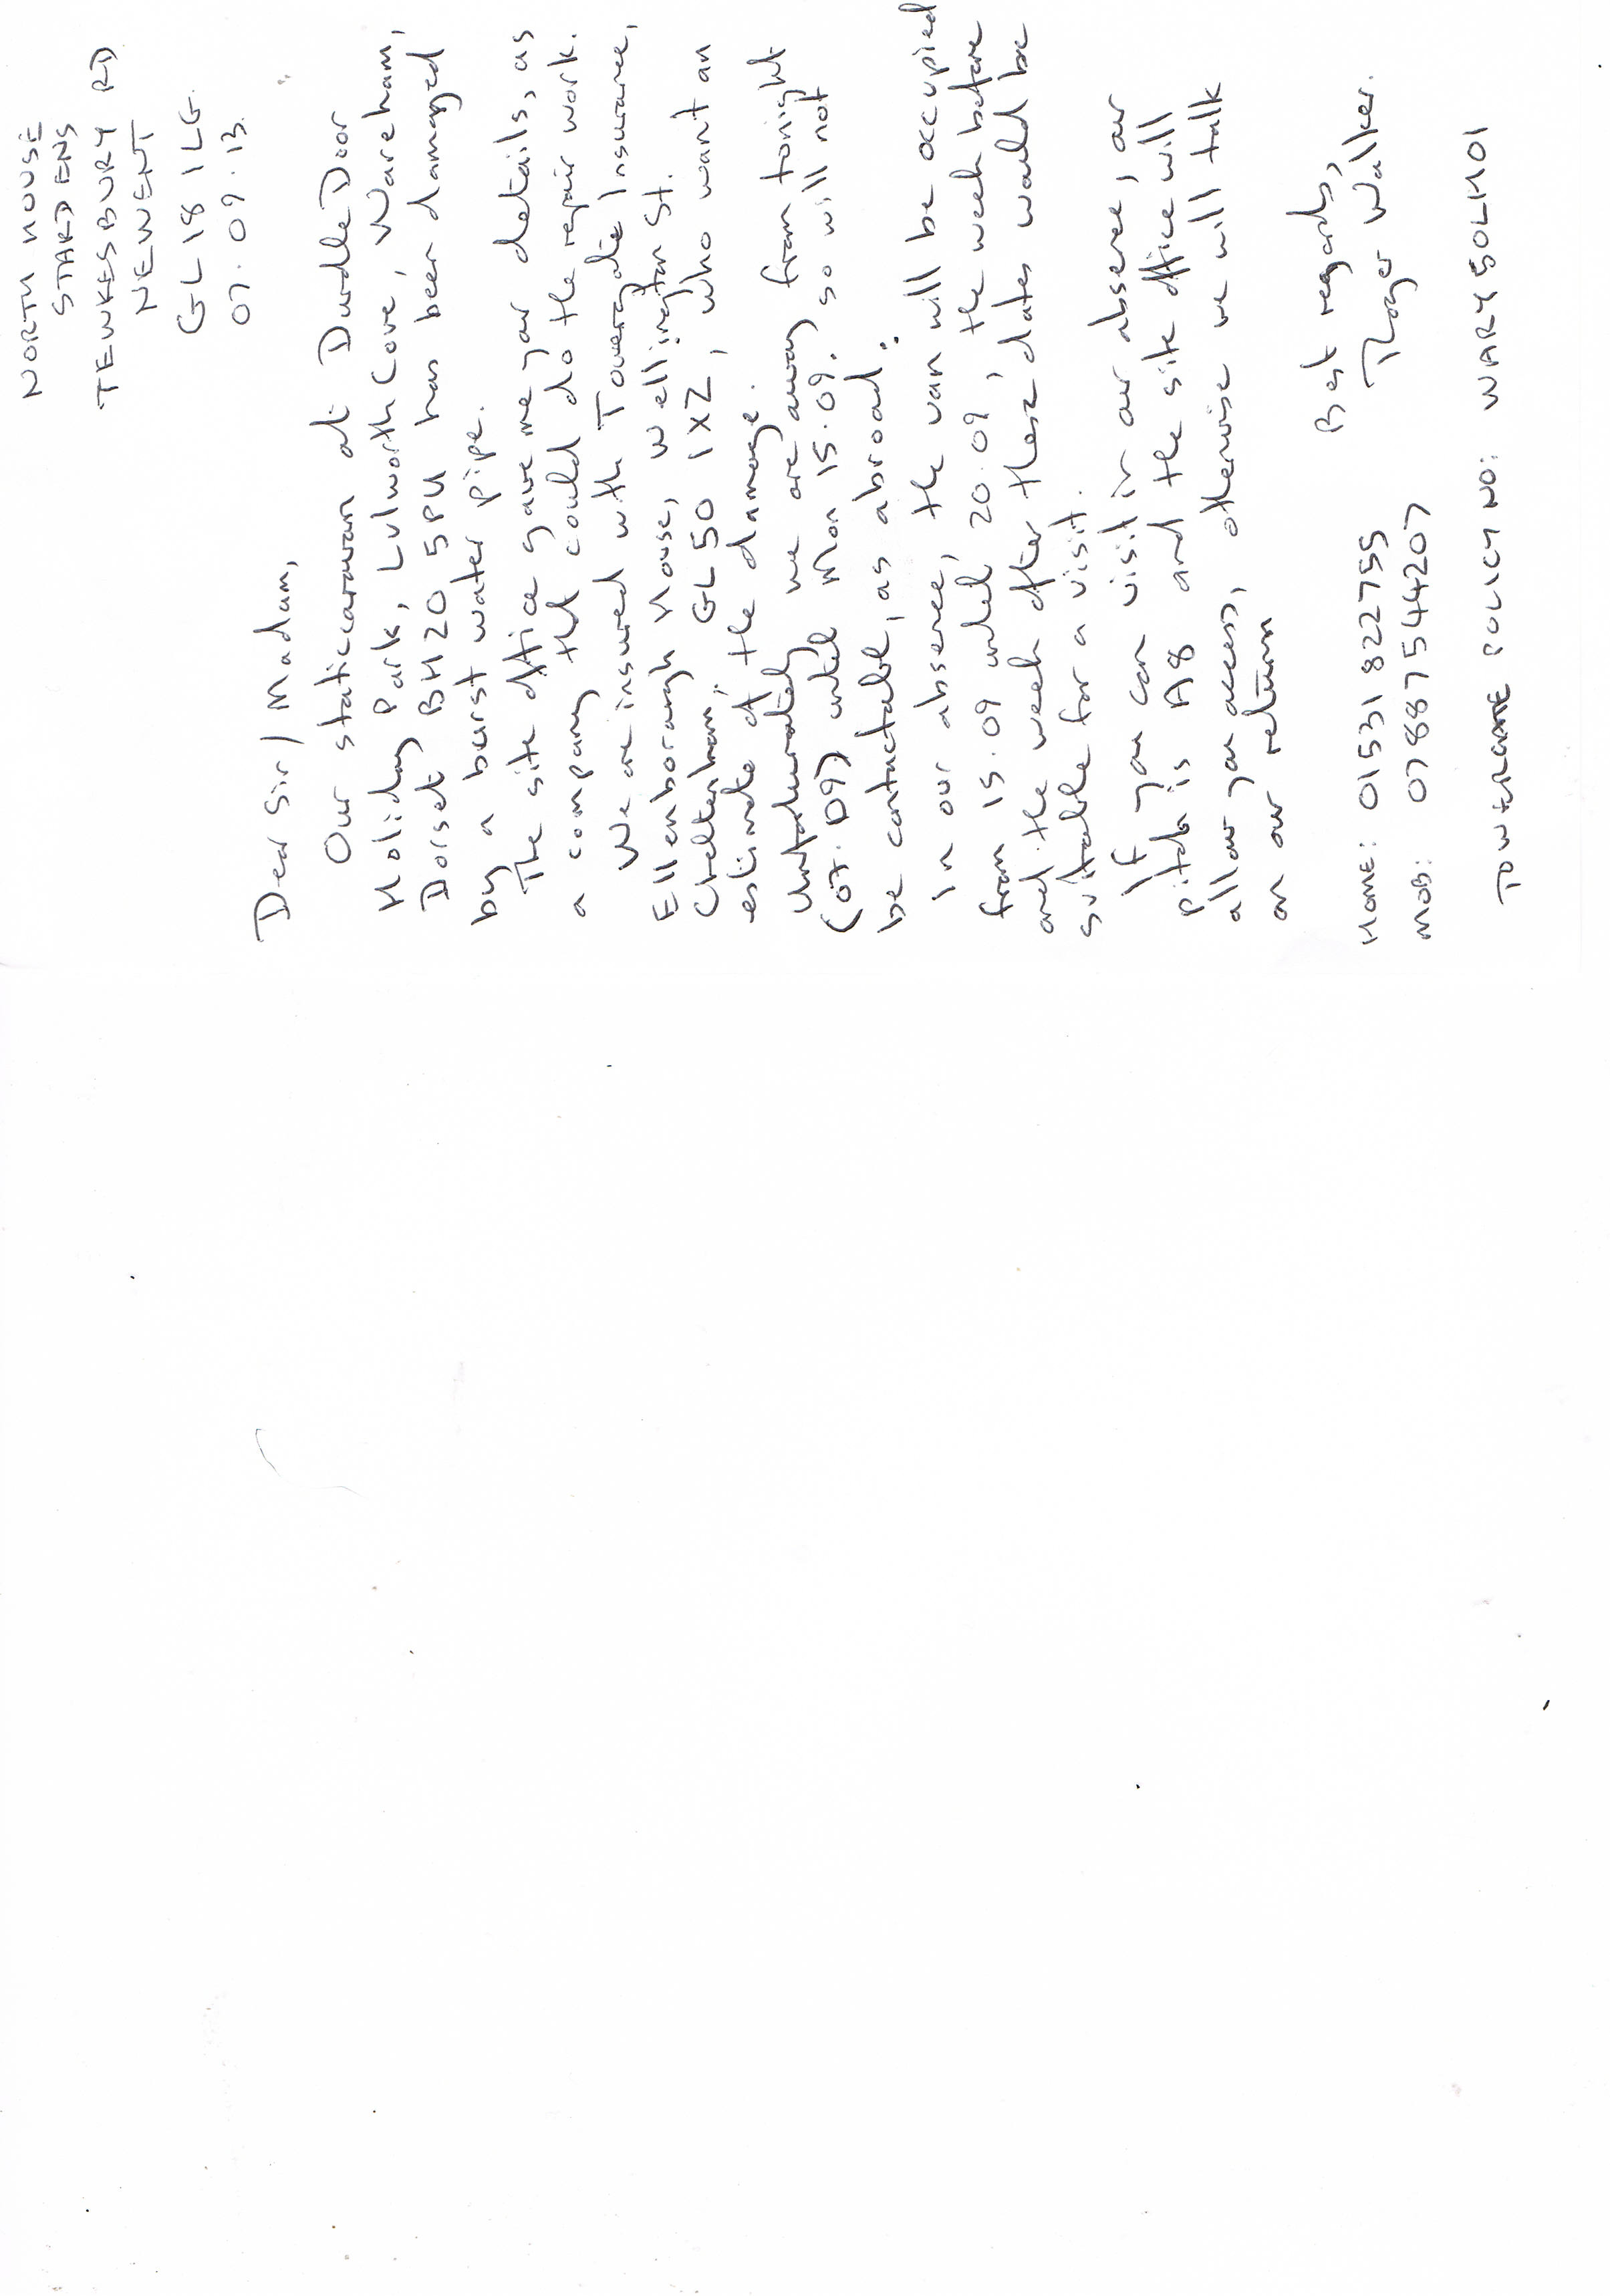 NORTH HOUSE
STARDENS
TEWKESBURY RD
NEWENT
GL18 1LG.
07.09.13.
Dear Sir/Madam,
Our static caravan at Durdle Door
Holiday Park, Lulworth Cove, Wareham,
Dorset BH20 5PU has been damaged
by a burst water pipe.
The site office gave me your details, as
a company that could do the repair work.
We are insured with Towergate Insurance,
Ellenborough House, Wellington St.
Cheltenham, GL50 1XZ, who want an
estimate of the damage.
Unfortunately we are away from tonight
(07.09) until Mon 15.09, so will not
be contactable, as abroad.
In our absence, the van will be occupied
from 15.09 until 20.09, the week before
and the week after these dates would be
suitable for a visit.
If you can visit in our absence, our
pitch is A8 and the site office will
allow you access, otherwise we will talk
on our return
Best regards,
Roger Walker.
HOME: 01531 822755
MOB: 07887544207
TOWERGATE POLICY NO: WARY50LM01